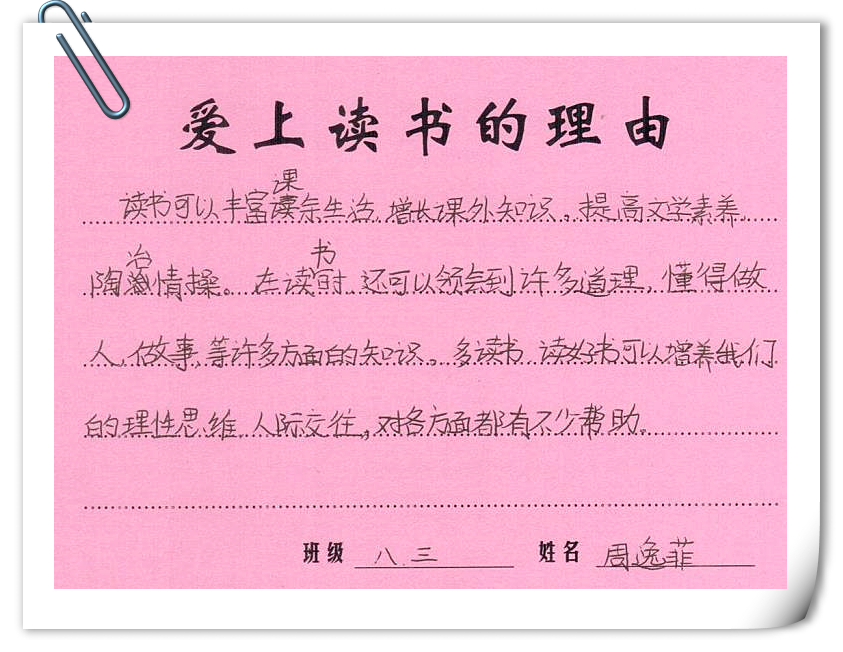 爱上读书的理由
读书可以丰富课余生活,增长课外知识。提高文学素养,
陶冶情操。在读书时,还可以领会到许多道理,懂得做
人,做事,等许多方面的知识。多读书,读好书可以增养我们
的理性思维,人际交往,对各方面都有不少帮助。
班级 八.三 姓名 周逸菲